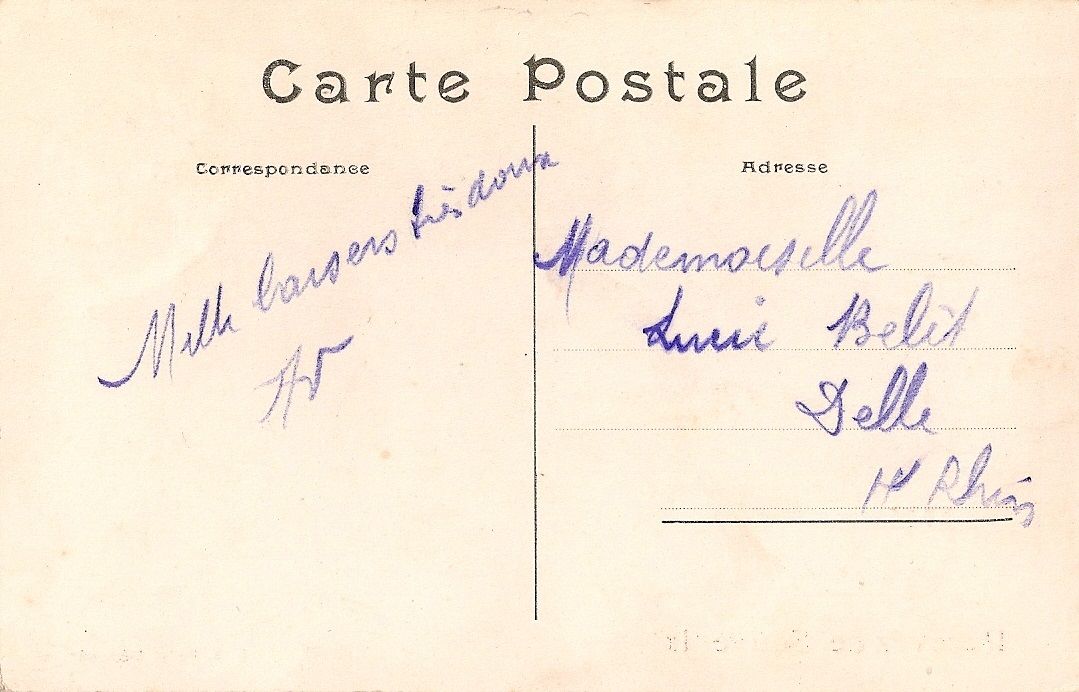 Carte Postale
Correspondance
Mille baisers très doux
Adresse
Mademoiselle
Lucie Belit
Delle
Ht Rhin